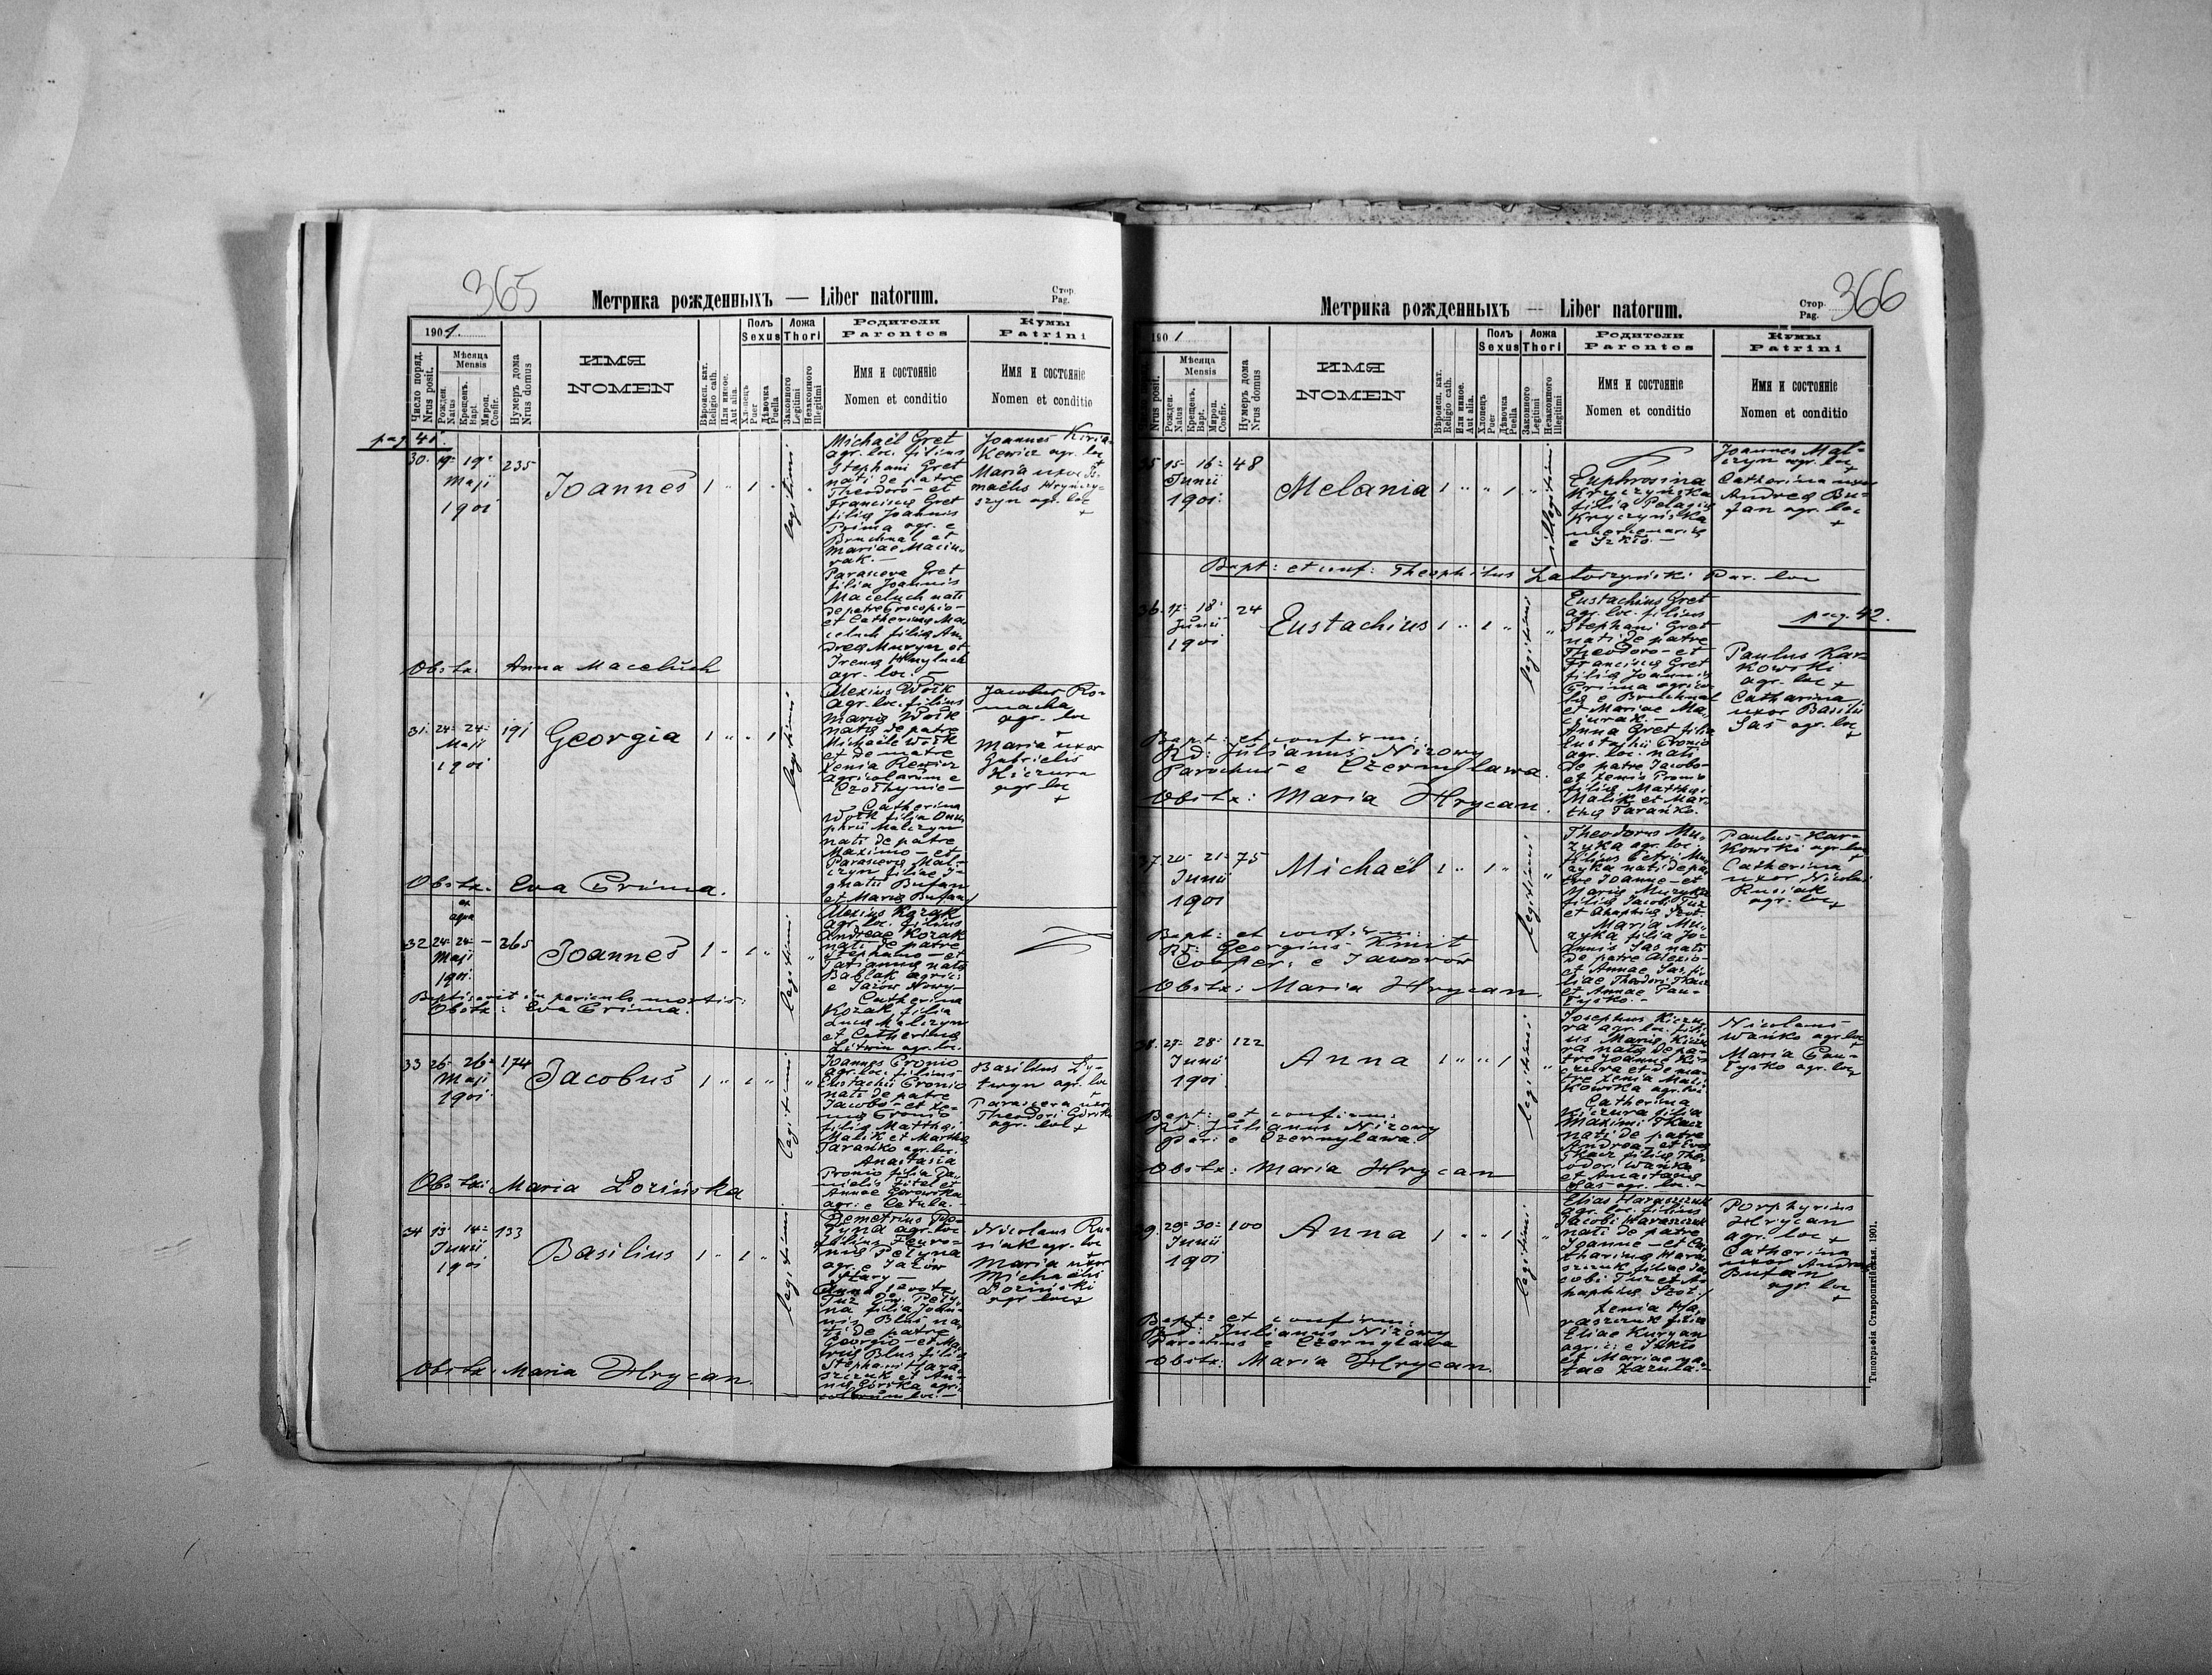 365
Метрика рожденныхъ — Liber natorum.
Стор.
Pag.
1901
Число поряд.
Nrus posit.
Мѣсяца
Mensis
Рожден.
Natus
Крещенъ.
Bapt.
Мѵроп.
Confir.
Нумеръ дома
Nrus domus
ИМЯ
NOMEN
Вѣроисп. кат.
Religio cath.
Или иное.
Aut alia.
Полъ
Sexus
Хлопецъ
Puer
Дѣвочка
Puella
Ложа
Thori
Законного
Legitimi
Незаконного
Illegitimi
Родители
Parentes
Имя и состояніе
Nomen et conditio
Кумы
Patrini
Имя и состояніе
Nomen et conditio
pag 41.
30. 19 19 235
Maji
1901
Joannes
legitimi
Michaël Gret
agr. loc. filius
Stephani Gret
nati de patre
Theodoro - et
Franciscae Gret
filiae Joannis
Prima agr. e
Bruchnal et
Mariae Maciu-
rak.
Parasceva Gret
filia Joannis
Maceluch nati
de patre Procopio -
et Catherinae Ma-
celuch filiae An-
dreae Muryn et
Irenae Hmyluch
agr. loc. -
Joannes Kiria-
kewicz agr. loc
+
Maria uxor Is-
maëlis Hrynczy-
szyn agr. loc
+
Obstx. Anna Maceluch
31. 24 24 191
Maji
1901
Georgia
legitimi
Alexius Wołk
agr. loc. filius
Mariae Wołk
natae de patre
Michaële Wołk
et de matre
Xenia Rewicz
agricolarum e
Czołhynie -
Catherina
Wołk filia Onu-
phrii Malczyn
nati de patre
Maximo - et
Parascevae Mal-
czyn filiae I-
gnatii Bufan
et Mariae Bufan
Jacobus Ro-
macha
agr. loc
+
Maria uxor
Gabrielis
Kiczura
agr. loc
+
Obstx. Eva Prima.
ex
aqua
32 24 24 - 365
Maji
1901
Joannes
legitimi
Alexius Kozak
agr. loc. filius
Andreae Kozak
nati de patre
Stephano - et
Tatiannae natae
Bablak agric:
e Jazów Nowy -
Catherina
Kozak filia
Lucae Malczyn
et Catherinae
Litwin agr. loc.
Baptisavit in periculo mortis:
Obstx: Eva Prima.
33 26 26 174
Maji
1901
Jacobus
legitimi
Joannes Pronio
agr. loc. filius
Eustachii Pronio
nati de patre
Jacobo - et Xe-
niae Pronio
filiae Matthaei
Malik et Marthae
Tarańko agr. loc.
Anastasia
Pronio filia Da-
nielis Zitel et
Annae Gorowska
agr. e Cetula.
Basilius Ly-
twyn agr. loc
+
Parasceva uxor
Theodori Górski
agr. loc +
Obstx: Maria Łozińska
34 13 14 133
Junii
1901
Basilius
legitimi
Demetrius Pe-
tyna agr. loc
filius Fevro-
niae Petyna
agr. e Jazów
Stary -
Anna 1 voto
Tuz 2v. Pety-
na filia Joan-
nis Blus na-
ti de patre
Georgio - et Ma-
riae Blus filiae
Stephani Hara-
szczuk et An-
nae Górska agri-
colarum loc. -
Nicolaus Ru-
siak agr. loc
+
Maria uxor
Michaëlis
Łoziński
agr loc +
Obstx. Maria Hrycan.
366
Метрика рожденныхъ — Liber natorum.
Стор.
Pag.
1901
Nrus posit.
Мѣсяца
Mensis
Рожден.
Natus
Крещенъ.
Bapt.
Мѵроп.
Confir.
Нумеръ дома
Nrus domus
ИМЯ
NOMEN
Вѣроисп. кат.
Religio cath.
Или иное.
Aut alia.
Полъ
Sexus
Хлопецъ
Puer
Дѣвочка
Puella
Ложа
Thori
Законного
Legitimi
Незаконного
Illegitimi
Родители
Parentes
Имя и состояніе
Nomen et conditio
Кумы
Patrini
Имя и состояніе
Nomen et conditio
35 15 16 48
Junii
1901
Melania
illegitimi
Euphrosina
Kryczyńska
filia Pelagiae
Kryczyńska
e Szkło. -
Joannes Mal-
czyn agr. loc
+
Catherina uxor
Andreae Bu-
fan agr. loc
+
Bapt: et conf: Theophilus Łatoszyński Par. loc
36. 17 18 24
Junii
1901
Eustachius
legitimi
Eustachius Gret
agr. loc. filius
Stephani Gret
nati de patre
Theodoro - et
Franciscae Gret
filiae Joannis
Prima agrico-
lae e Bruchnal
et Mariae Ma-
ciurak. -
Anna Gret filia
Eustachii Pronio
agr. loc. nati
de patre Jacobo -
et Xeniae Pronio
filiae Matthaei
Malik et Mar-
thae Tarańko.
pag. 42.
Paulus Kar-
kowski
agr. loc +
Catharina
uxor Basilii
Sas agr. loc
+
Bapt: et confirm:
Rd: Julianus Nizowy
Parochus e Czernylawa.
Obstx: Maria Hrycan.
37. 20 21 75
Junii
1901
Michaël
legitimi
Theodorus Mu-
zyka agr. loc.
filius Petri Mu-
zyka nati de pa-
tre Joanne - et
Mariae Muzyka
filiae Jacobi Tuz
et Ahaphiae Szot.
Maria Mu-
zyka filia Jo-
annis Sas nati
de patre Alexio -
et Annae Sas fi-
liae Theodori Tkacz
et Annae Pau-
tysko. -
Paulus Kar-
kowski agr. loc
+
Catherina
uxor Nicolai
Rusiak
agr. loc +
Bapt: et confirm:
Rd: Georgius Kmit
Cooper: e Jaworów
Obstx: Maria Hrycan.
38. 27 28 122
Junii
1901
Anna
legitimi
Josephus Kiczu-
ra agr. loc. fili-
us Mariae Kiczu-
ra natae de pa-
tre Joanne Ki-
czura et de ma-
tre Xenia Mali-
kowska agr. loc
Catherina
Kiczura filia
Maximi Tkacz
nati de patre
Andrea - et Evae
Tkacz filiae The-
odori Wańko
et Anastasiae
Sas agr. loc. -
Nicolaus
Wańko agr. loc
+
Maria Pau-
tysko agr. loc
+
Bapt: et confirm:
Rd: Julianus Nizowy
Par: e Czernylawa
Obstx: Maria Hrycan
39. 29 30 100
Junii
1901
Anna
legitimi
Elias Haraszczuk
agr. loc. filius
Jacobi Haraszczuk
nati de patre
Joanne - et Ca-
tharinae Hara-
szczuk filiae Ja-
cobi Tuz et A-
haphiae Szot. /
Xenia Ha-
raszczuk filia
Eliae Kuryan
agric: e Szkło
et Mariae na-
tae Zazula. -
Porphyrius
Hrycan
agr. loc +
Catherina
uxor Andreae
Bufan
agr. loc
+
Bapt: et confirm:
Rd: Julianus Nizowy
Parochus e Czernylawa
Obstx: Maria Hrycan.
Типографія Ставропигійская. 1901.